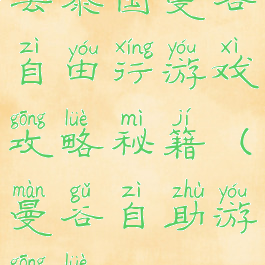 泰国曼谷
zì yóu xíng yóu xì
自由行游戏
gōng lüè mì jí
攻略秘籍（
màn gǔ zì zhù yóu
曼谷自助游
gōng lüè